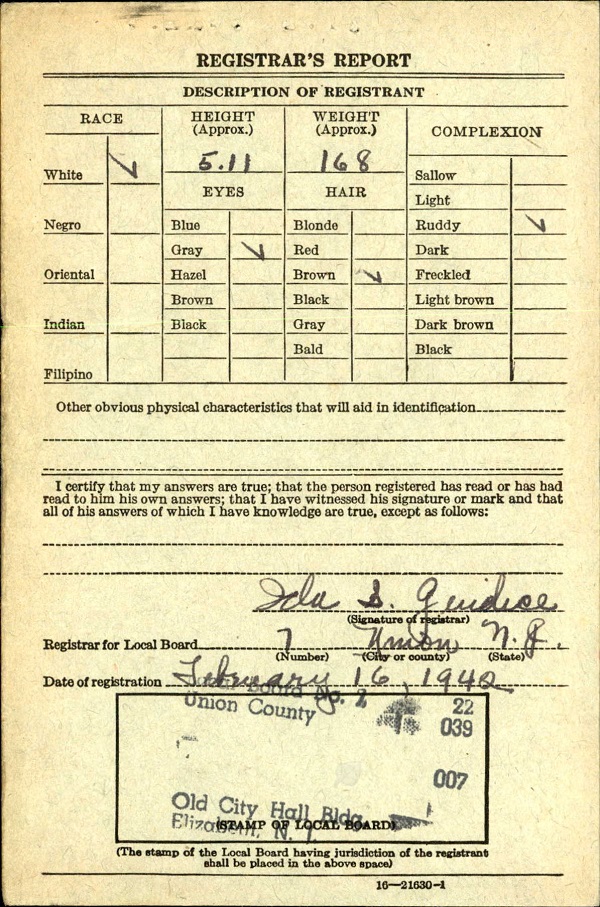 REGISTRAR'S REPORT
DESCRIPTION OF REGISTRANT
RACE
HEIGHT
(Approx.)
WEIGHT
(Approx.)
COMPLEXION
White ✓
5.11
168
Sallow
EYES
HAIR
Light
Negro
Blue
Blonde
Ruddy ✓
Gray ✓
Red
Dark
Oriental
Hazel
Brown ✓
Freckled
Brown
Black
Light brown
Indian
Black
Gray
Dark brown
Bald
Black
Filipino
Other obvious physical characteristics that will aid in identification
I certify that my answers are true; that the person registered has read or has had
read to him his own answers; that I have witnessed his signature or mark and that
all of his answers of which I have knowledge are true, except as follows:
Ida S. Guidice
(Signature of registrar)
Registrar for Local Board 7 Union N.J.
(Number) (City or county) (State)
Date of registration February 16, 1942
Board No. 2 22
Union County 039
007
Old City Hall Bldg.
Elizabeth, N. J.
(STAMP OF LOCAL BOARD)
(The stamp of the Local Board having jurisdiction of the registrant
shall be placed in the above space)
16—21630-1